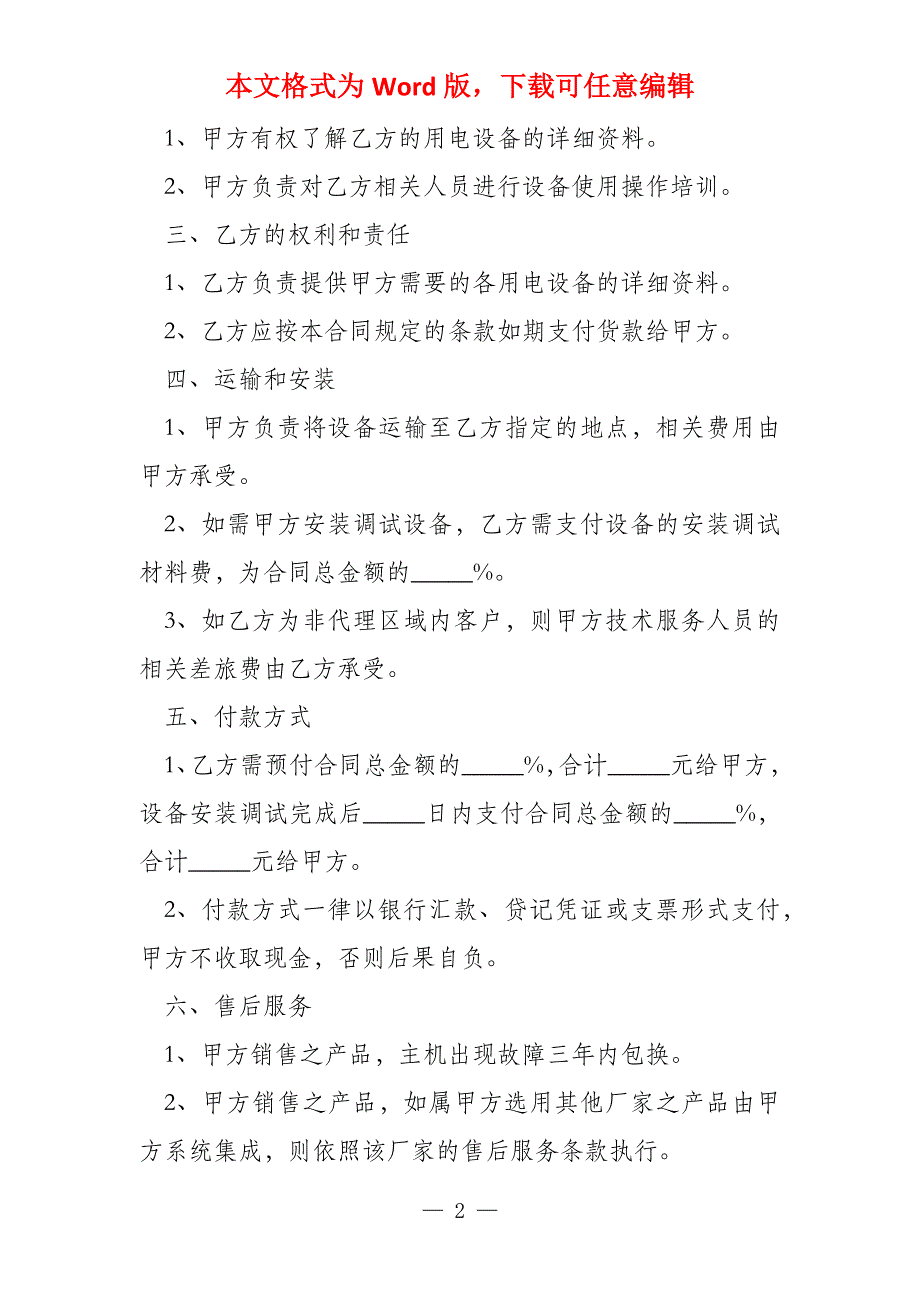 本文格式为 Word 版，下载可任意编辑
1、甲方有权了解乙方的用电设备的详细资料。
2、甲方负责对乙方相关人员进行设备使用操作培训。
三、乙方的权利和责任
1、乙方负责提供甲方需要的各用电设备的详细资料。
2、乙方应按本合同规定的条款如期支付货款给甲方。
四、运输和安装
1、甲方负责将设备运输至乙方指定的地点，相关费用由
甲方承受。
2、如需甲方安装调试设备，乙方需支付设备的安装调试
材料费，为合同总金额的_____%。
3、如乙方为非代理区域内客户，则甲方技术服务人员的
相关差旅费由乙方承受。
五、付款方式
1、乙方需预付合同总金额的_____%，合计_____元给甲方，
设备安装调试完成后_____日内支付合同总金额的_____%，
合计_____元给甲方。
2、付款方式一律以银行汇款、贷记凭证或支票形式支付，
甲方不收取现金，否则后果自负。
六、售后服务
1、甲方销售之产品，主机出现故障三年内包换。
2、甲方销售之产品，如属甲方选用其他厂家之产品由甲
方系统集成，则依照该厂家的售后服务条款执行。
— 2 —